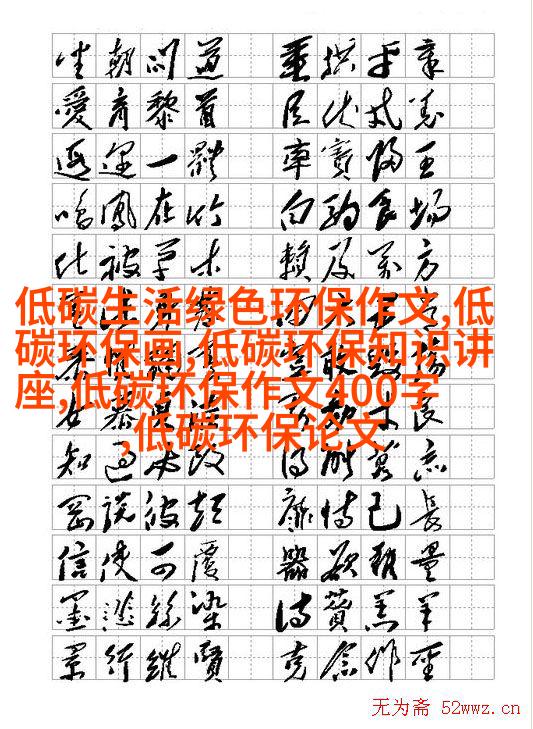 坐朝問道 垂拱平章
愛育黎首 臣伏戎羌
遐邇一體 率賓歸王
鳴鳳在竹 白駒食場
化被草木 賴及萬方
低碳生活绿色环保作文,低
碳环保画,低碳环保知识讲
座,低碳环保作文400字
,低碳环保论文
知過必改 得能莫忘
罔談彼短 靡恃己長
信使可覆 器欲難量
墨悲絲染 詩贊羔羊
景行維賢 克念作聖
无为斋 52wwz.cn